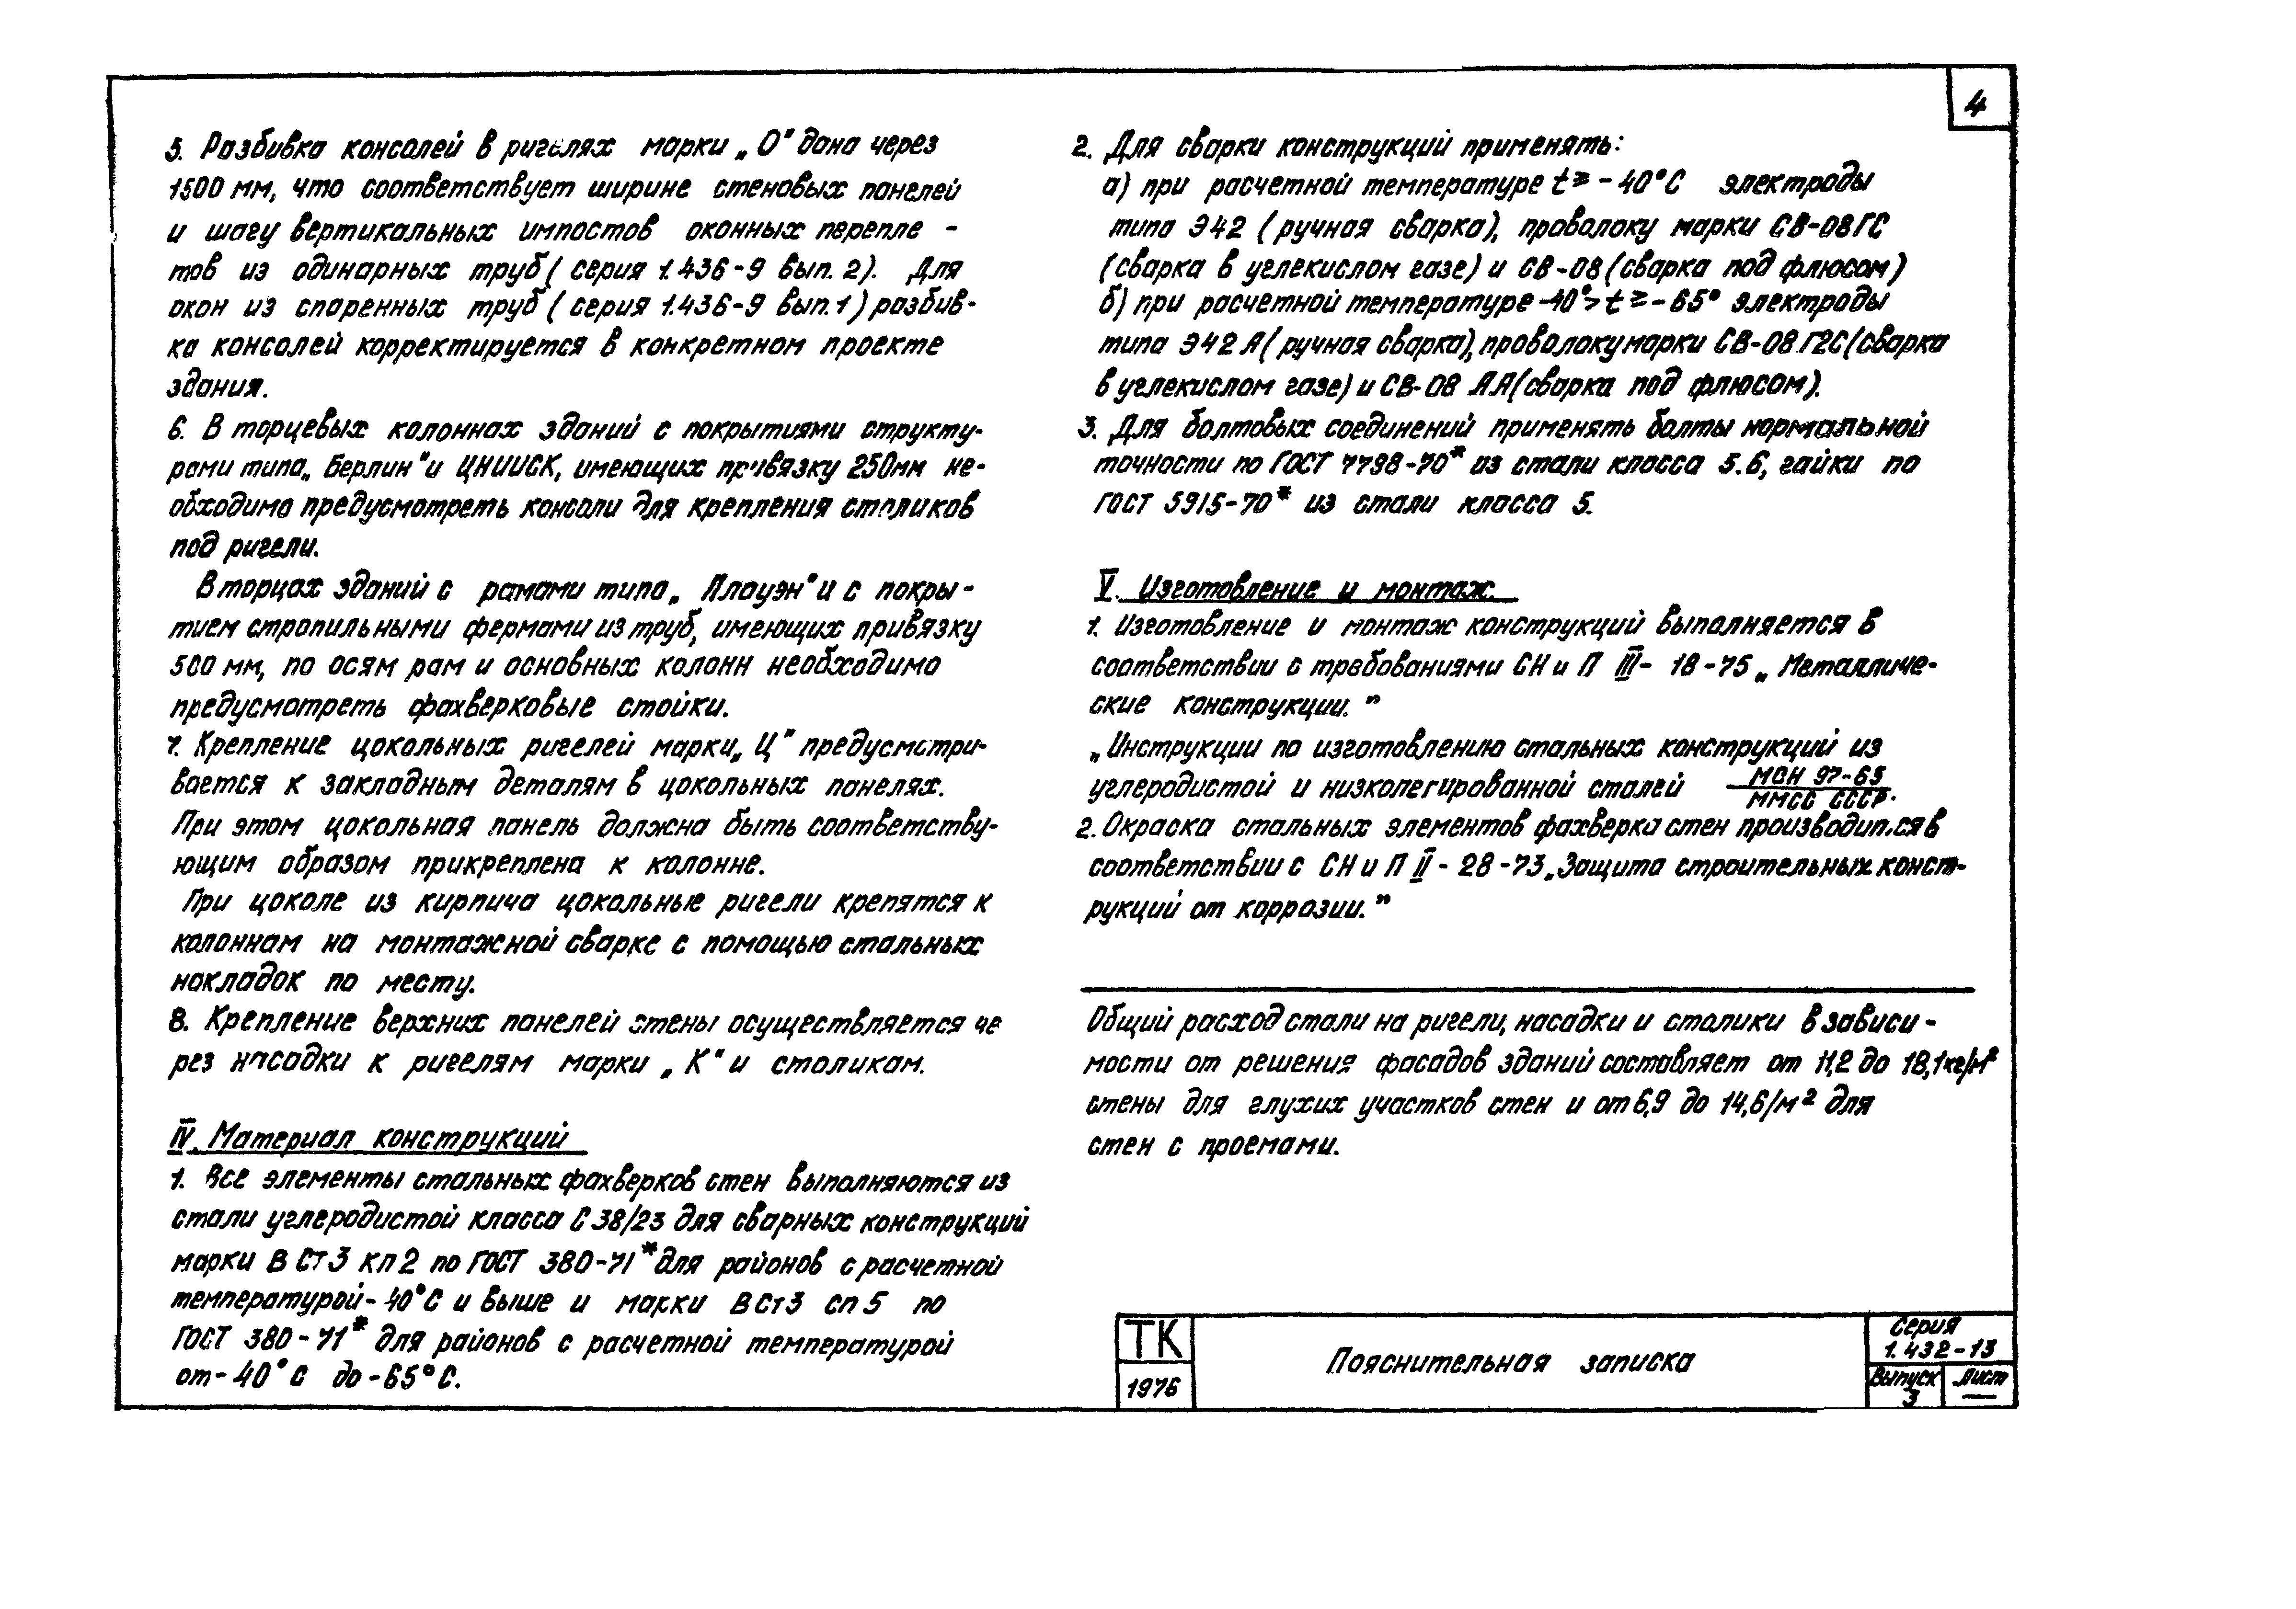 4
5. Разбивка консолей в ригелях марки „О" дана через
1500 мм, что соответствует ширине стеновых панелей
и шагу вертикальных импостов оконных перепле -
тов из одинарных труб ( серия 1.436-9 вып. 2). Для
окон из спаренных труб ( серия 1.436-9 вып.1) разбив-
ка консолей корректируется в конкретном проекте
здания.
6. В торцевых колоннах зданий с покрытиями структу-
рами типа „Берлин" и ЦНИИСК, имеющих привязку 250мм не-
обходимо предусмотреть консоли для крепления столиков
под ригели.
В торцах зданий с рамами типа „ Плауэн" и с покры -
тием стропильными фермами из труб, имеющих привязку
500 мм, по осям рам и основных колонн необходимо
предусмотреть фахверковые стойки.
7. Крепление цокольных ригелей марки „ Ц" предусматри-
вается к закладным деталям в цокольных панелях.
При этом цокольная панель должна быть соответству-
ющим образом прикреплена к колонне.
При цоколе из кирпича цокольные ригели крепятся к
колоннам на монтажной сварке с помощью стальных
накладок по месту.
8. Крепление верхних панелей стены осуществляется че
рез насадки к ригелям марки „ К" и столикам.
IV. Материал конструкций
1. Все элементы стальных фахверков стен выполняются из
стали углеродистой класса С 38/23 для сварных конструкций
марки В Ст 3 кп 2 по ГОСТ 380-71* для районов с расчетной
температурой - 40°С и выше и марки В Ст 3 сп 5 по
ГОСТ 380 - 71* для районов с расчетной температурой
от - 40°С до - 65°С.
2. Для сварки конструкций применять:
а) при расчетной температуре t ≥ - 40°С электроды
типа Э 42 ( ручная сварка), проволоку марки СВ-08ГС
(сварка в углекислом газе) и СВ-08 (сварка под флюсом)
б) при расчетной температуре -40°> t ≥ - 65° электроды
типа Э 42 А ( ручная сварка), проволоку марки СВ-08 Г2С (сварка
в углекислом газе) и СВ-08 АА (сварка под флюсом).
3. Для болтовых соединений применять болты нормальной
точности по ГОСТ 7798-70* из стали класса 5.6, гайки по
ГОСТ 5915-70* из стали класса 5.
V. Изготовление и монтаж.
1. Изготовление и монтаж конструкций выполняется в
соответствии с требованиями СН и П III - 18 - 75 „ Металличе-
ские конструкции. "
„Инструкции по изготовлению стальных конструкций из
углеродистой и низколегированной сталей МСН 97-65
ММСС СССР.
2. Окраска стальных элементов фахверка стен производится в
соответствии с СН и П II - 28 - 73 „Защита строительных конст-
рукций от коррозии. "
Общий расход стали на ригели, насадки и столики в зависи -
мости от решения фасадов зданий составляет от 11,2 до 18,1 кг/м²
стены для глухих участков стен и от 6,9 до 14,6/м² для
стен с проемами.
ТК
1976
Пояснительная записка
Серия
1. 432 - 13
Выпуск
3
Лист
—